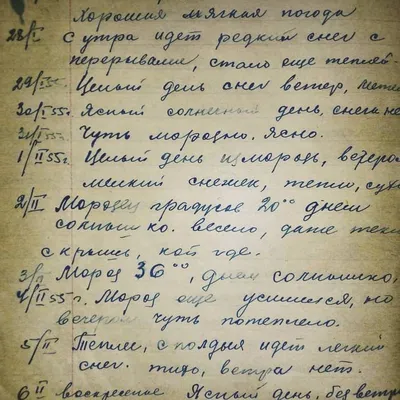 Хорошая мягкая погода
28/I с утра идет редкий снег с
перерывами, стало еще теплей.
29/I 55г. Целый день снег ветер, метел
30/I 55г. Ясный солнечный день, снега не
31/I 55г. Чуть морозно. Ясно.
1/II 55г. Целый день изморозь, ветерок
мелкий снежек, тепло, сухо
2/II Морозец градусов 20°° днем
солнышко. весело, даже теки
с крыш, кой где.
3/II Мороз 36°°, днем солнышко,
4/II 55г. Мороз еще усилился, но
вечером чуть потеплело.
5/II Теплее, с полдня идет легкий
снег. тихо, ветра нет.
6 II воскресение Ясный день, без ветра